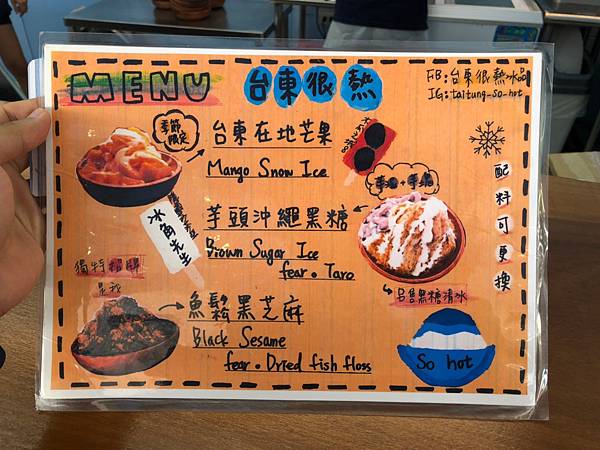 MENU
台東很熱
FB:台東很熱冰品
IG:taitung_so_hot
季節
限定
台東在地芒果
Mango Snow Ice
冰角先生
芋頭沖繩黑糖
Brown Sugar Ice
fear. Taro
配料可更換
獨特招牌
是我
只賣黑糖清冰
魚鬆黑芝麻
Black Sesame
fear. Dried fish floss
So hot